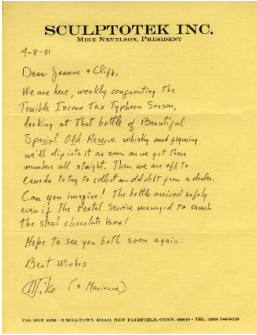 SCULPTOTEK INC.
MIKE NEVELSON, PRESIDENT
4-8-81
Dear Jeanne & Cliff,
We are here, weekly confronting the
Terrible Income Tax Typhoon Season,
looking at That bottle of Beautiful
Special Old Reserve whisky and figuring
we'll dip into it as soon as we get these
numbers all straight. Then we are off to
Canada to try to collect an old debt from a dealer.
Can you imagine! The bottle arrived safely
even if The Postal Service managed to crush
the steel chocolate box!
Hope to see you both soon again.
Best Wishes
Mike (& Marianne)
P.O. BOX
MILLTOWN ROAD, NEW FAIRFIELD, CONN.